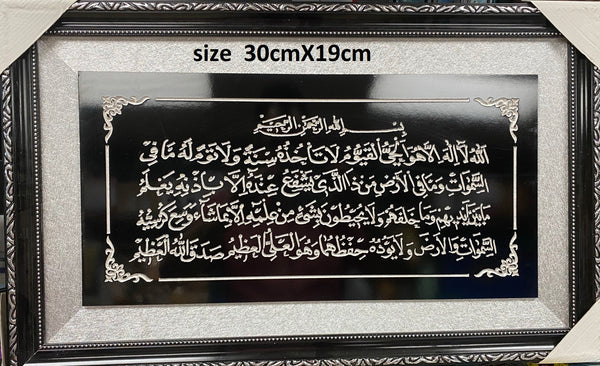 size 30cmX19cm
بسم الله الرحمن الرحيم
الله لا اله الا هو الحي القيوم لا تأخذه سنة ولا نوم له ما في
السموات وما في الارض من ذا الذي يشفع عنده الا باذنه يعلم
ما بين ايديهم وما خلفهم ولا يحيطون بشئ من علمه الا بما شاء وسع كرسيه
السموات والارض ولا يؤده حفظهما وهو العلي العظيم صدق الله العظيم